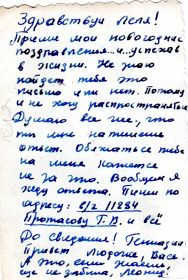 Здравствуй Леля!
Прими мои новогодние
поздравления...и...успехов
в жизни. Не знаю
найдет тебя это
письмо или нет. Потому
и не хочу распространяться
Думаю все же, что
ты мне напишешь
ответ. Обижаться тебе
на меня кажется
не за что. Вообщем я
жду ответа. Пиши по
адресу: в/г 11284
Протасову Г.В. и всё
До свидания! Геннадий.
Привет Людочке, Васе.
А это, если жалеешь,
еще не забыла, Леониду.